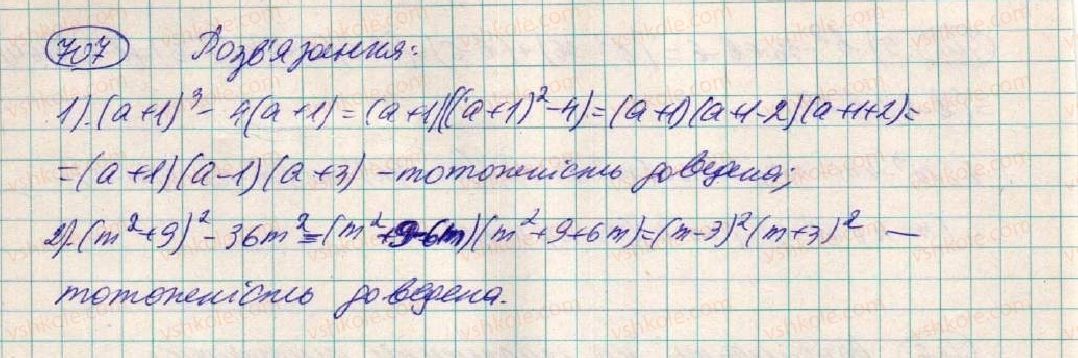 707 Розв'язання:
1). (a+1)³ - 4(a+1) = (a+1)((a+1)² - 4) = (a+1)(a+1-2)(a+1+2) =
= (a+1)(a-1)(a+3) - тотожність доведена;
2). (m²+9)² - 36m² = (m²+9-6m)(m²+9+6m) = (m-3)²(m+3)² —
тотожність доведена.